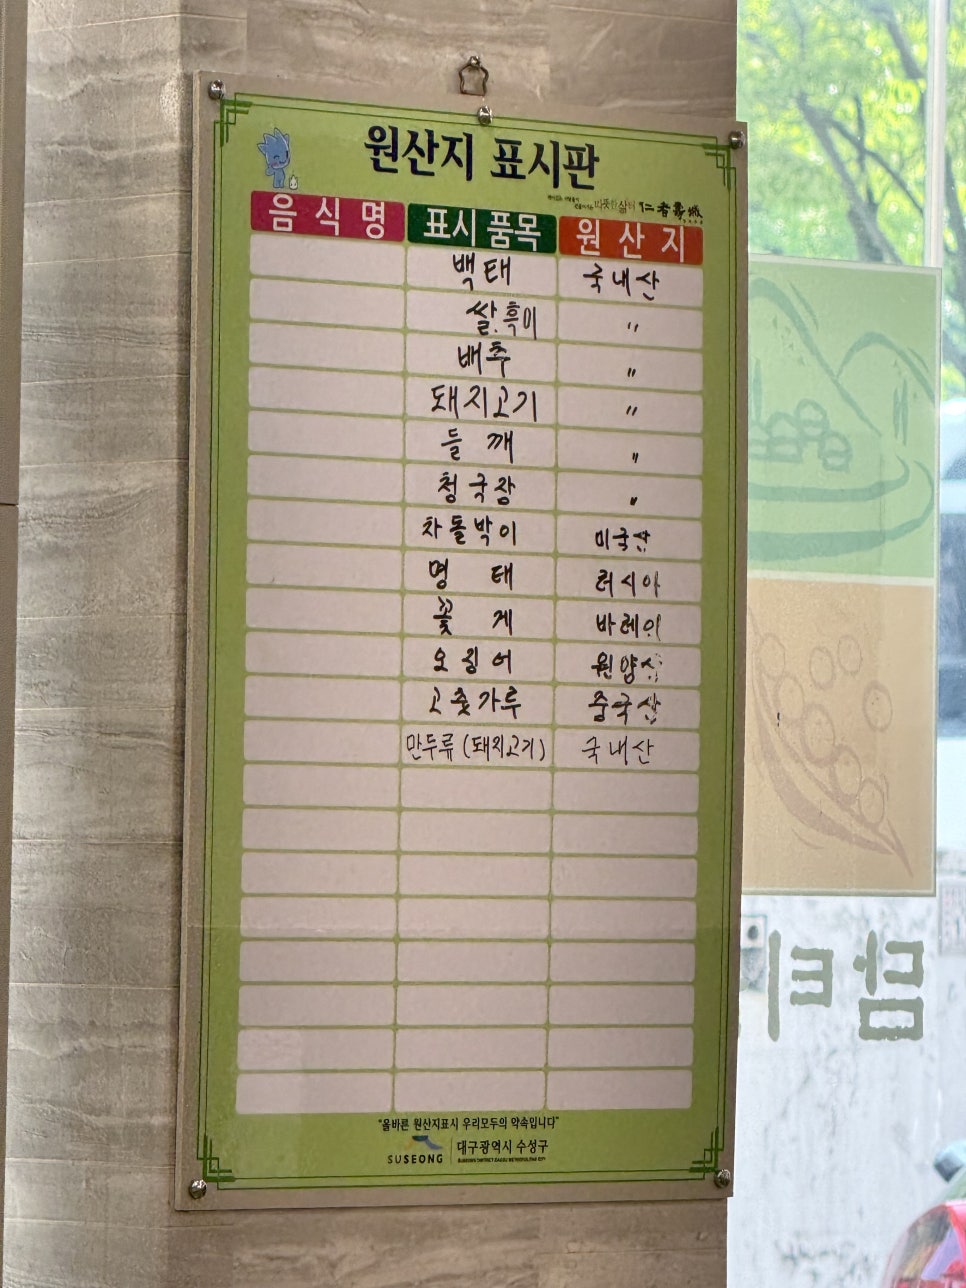 원산지 표시판
따뜻한 삶터 仁者壽城
음식명 표시품목 원산지
백태 국내산
쌀.흑미 〃
배추 〃
돼지고기 〃
들깨 〃
청국장 〃
차돌박이 미국산
명태 러시아
꽃게 바레인
오징어 원양산
고춧가루 중국산
만두류(돼지고기) 국내산
"올바른 원산지표시 우리모두의 약속입니다"
SUSEONG 대구광역시 수성구
SUSEONG DISTRICT DAEGU METROPOLITAN CITY